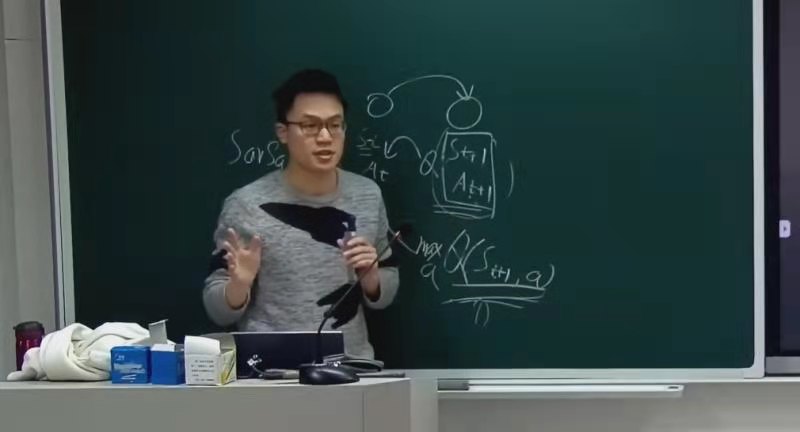 Sarsa
St
At
Q(
St+1
At+1
)
max Q(St+1, a)
a